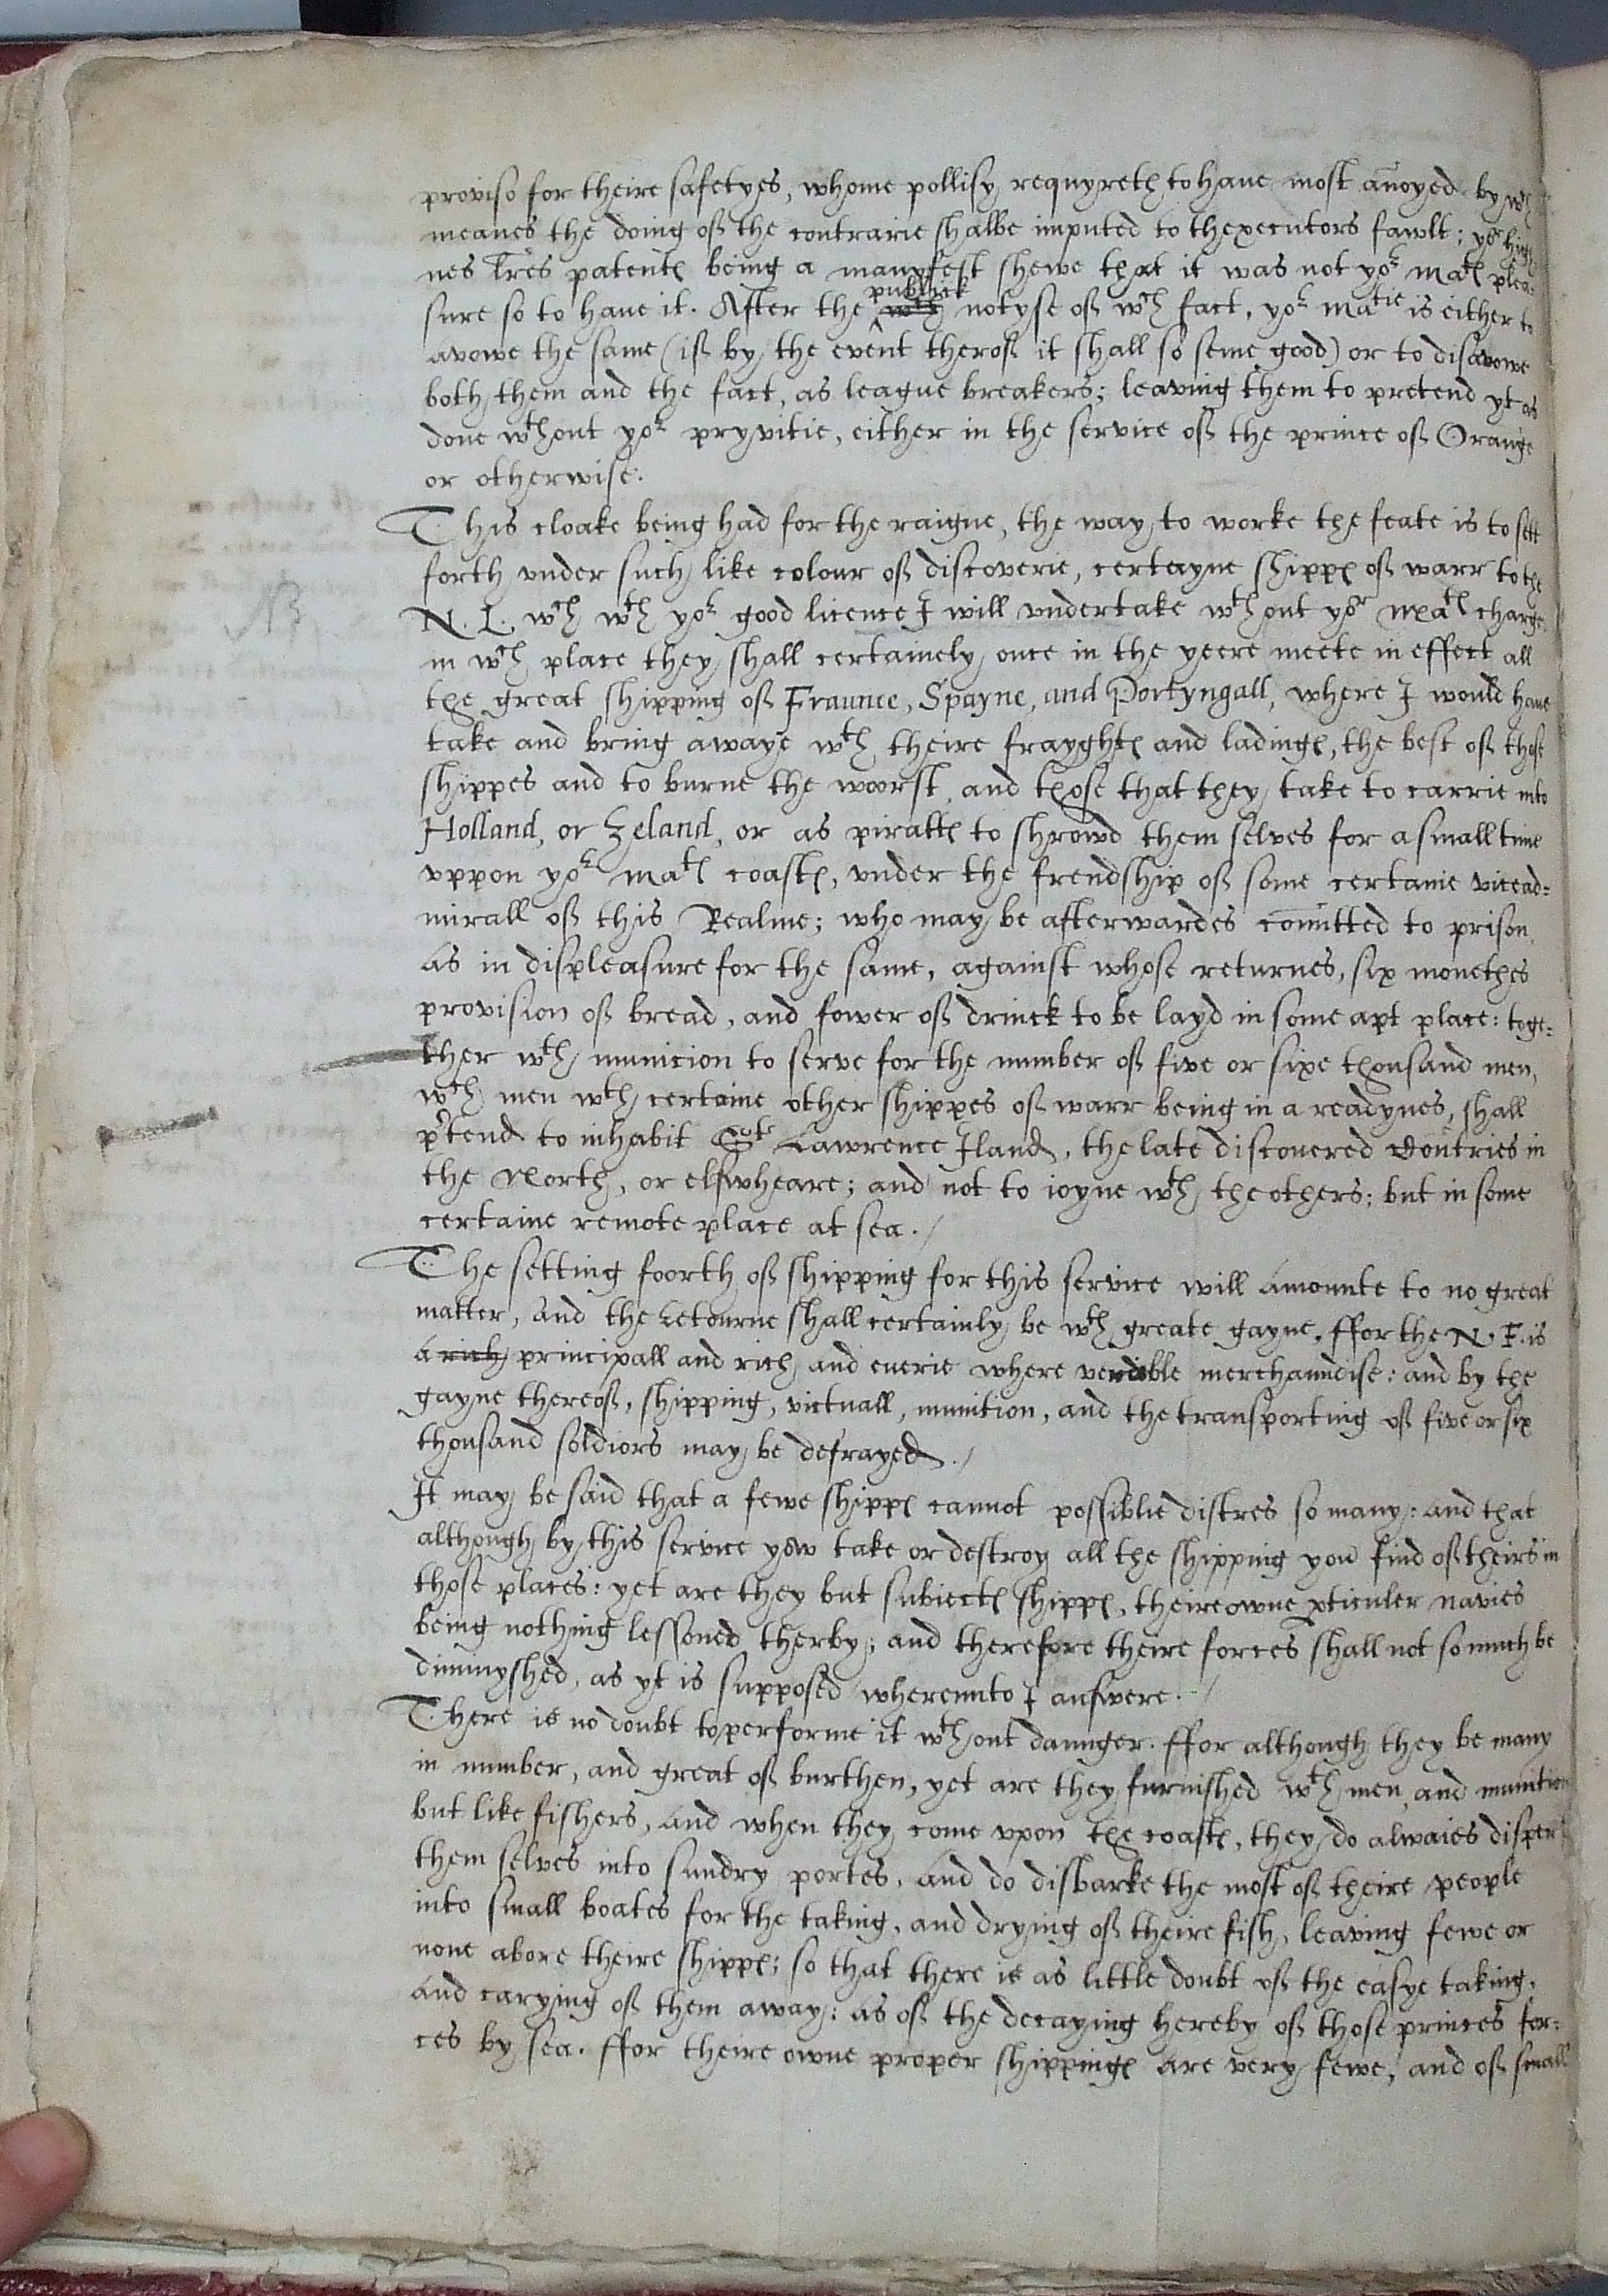 proviso for theire safetyes, whome pollisy requyreth to haue most anoyed by wch
meanes the doing of the contrarie shalbe imputed to thexecutors fawlt; yor high
nes Lres patentes being a manyfest shewe that it was not yor mates plea-
publick
sure so to haue it. After the wch notyse of wch fact, yor matie is either to
avowe the same (if by the event therof it shall so seme good) or to disavowe
both them and the fact, as league breakers; leaving them to pretend yt as
done wthout yor pryvitie, either in the service of the prince of Orange
or otherwise.
This cloake being had for the raigne, the way to worke the feate is to sett
forth vnder such like colour of discoverie, certayne shippes of warr to the
NB
N. L. wch wth yor good licence I will vndertake wthout yor mates charge.
in wch place they shall certainely once in the yeere meete in effect all
the great shipping of Fraunce, Spayne, and Portyngall, where I would haue
take and bring awaye wth theire frayghtes and ladinges, the best of those
shippes and to burne the woorst, and those that they take to carrie into
Holland, or Zeland, or as pirattes to shrowd them selves for a small time
vppon yor mates coastes, vnder the frendship of some certaine vicead=
mirall of this Realme; who may be afterwardes comitted to prison,
as in displeasure for the same, against whose returnes, six monethes
provision of bread, and fower of drinck to be layd in some apt place: toge=
ther wth municion to serve for the number of five or sixe thousand men,
wch men wth certaine other shippes of warr being in a readynes, shall
prtend to inhabit Snte Lawrence Iland, the late discouered Contries in
the North, or elswheare; and not to ioyne wth the others; but in some
certaine remote place at sea./
The setting foorth of shipping for this service will amounte to no great
matter, and the retourne shall certainly be wth greate gayne. ffor the N. F. is
a rich principall and rich and euerie where vendible merchaundise: and by the
gayne thereof, shipping, victuall, munition, and the transporting of five or six
thousand soldiors may be defrayed./
It may be said that a fewe shippes cannot possiblie distres so many: and that
although by this service yow take or destroy all the shipping you find of theirs in
those places: yet are they but subiectes shippes, theire owne pticuler navies
being nothing lessoned therby; and therefore theire forces shall not so much be
diminyshed, as yt is supposed whereunto I answere./
There is no doubt to performe it wthout daunger. ffor although they be many
in number, and great of burthen, yet are they furnished wth men, and munition
but like fishers, and when they come vpon the coastes, they do alwaies disper
them selves into sundry portes, and do disbarke the most of theire people
into small boates for the taking, and drying of theire fish, leaving fewe or
none abore theire shippes; so that there is as little doubt of the easye taking,
and carying of them away: as of the decaying hereby of those princes for=
ces by sea. ffor theire owne proper shippinges are very fewe, and of small